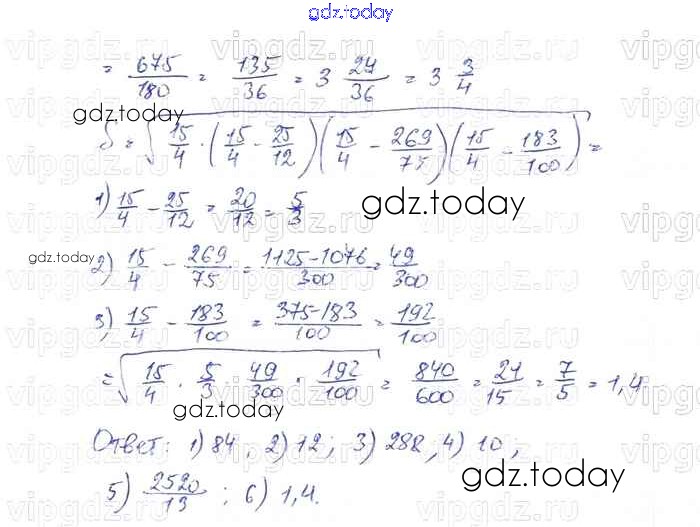 gdz.today
= 675/180 = 135/36 = 3 27/36 = 3 3/4
gdz.today
S = √(15/4 · (15/4 - 25/12)(15/4 - 269/75)(15/4 - 183/100)) =
1) 15/4 - 25/12 = 20/12 = 5/3
gdz.today
gdz.today
2) 15/4 - 269/75 = 1125-1076/300 = 49/300
3) 15/4 - 183/100 = 375-183/100 = 192/100
= √(15/4 · 5/3 · 49/300 · 192/100) = 840/600 = 21/15 = 7/5 = 1,4
gdz.today
Ответ: 1) 84, 2) 12; 3) 288, 4) 10;
gdz.today
5) 2520/13; 6) 1,4.